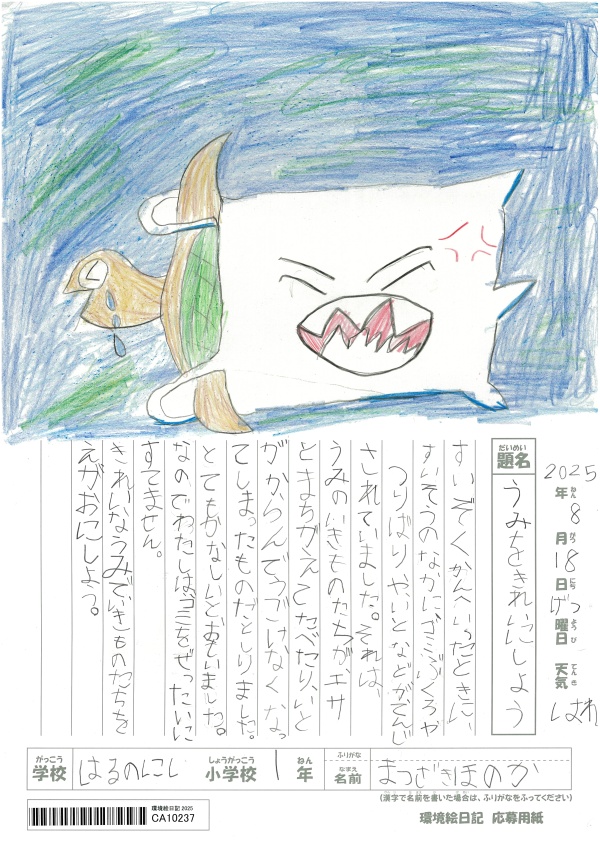 2025年ねん8月がつ18日にちげつ曜日ようび 天気てんき はれ
題名だいめい うみをきれいにしよう
すいぞくかんへいったときに、
すいそうのなかにゴミぶくろや
つりばりや、いとなどがてんじ
されていました。それは、
うみのいきものたちが、エサ
とまちがえてたべたり、いと
がからんでうごけなくなっ
てしまったものだとしりました。
とてもかなしいとおもいました。
なのでわたしは、ゴミをぜったいに
すてません。
きれいなうみでいきものたちを
えがおにしよう。
がっこう しょうがっこう ねん ふりがな
学校 はるのにし 小学校 1年 なまえ 名前 まつざきほのか
(漢字で名前を書いた場合は、ふりがなをふってください)
環境絵日記 2025
CA10237
環境絵日記 応募用紙